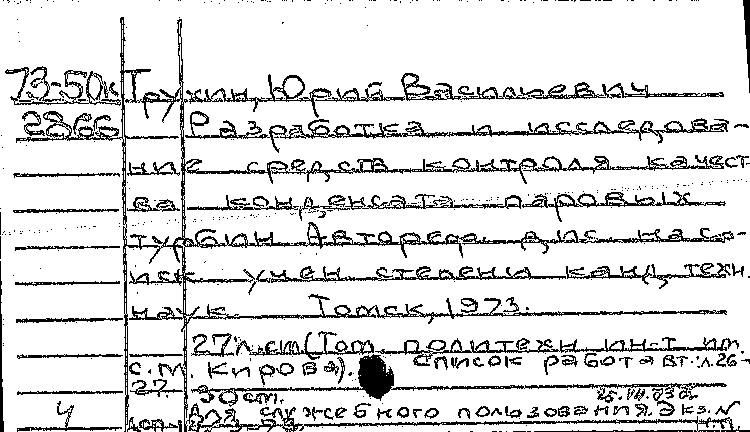 73-50к Трухин, Юрий Васильевич
2866 Разработка и исследова-
ние средств контроля качест
ва конденсата паровых
турбин Автореф. дис. на со-
иск учен степени канд, техн.
наук Томск, 1973.
27л.ст (Том. политехн ин-т им.
С.М. Кирова). Список работ авт.: л.26-
27. 30 ст.
4 Для служебного пользования. Экз. №